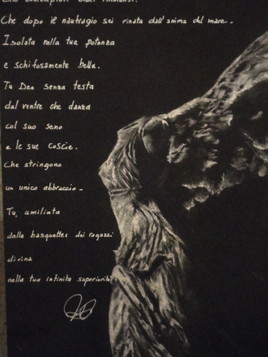 Che dopo il naufragio sei rinata dall'anima del mare.
Isolata nella tua potenza
e schifosamente bella.
Tu Dea senza testa
dal ventre che danza
col suo seno
e le sue coscie.
Che stringono
un unico abbraccio.
Tu, umiliata
dalle basquettes dei ragazzi
divina
nella tua infinita superiorità